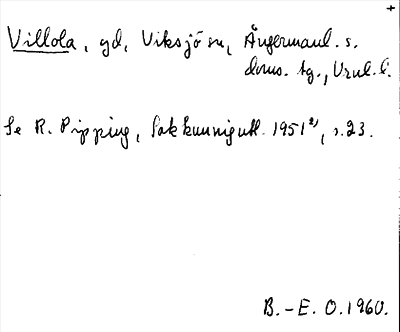 +
Villola, gd, Viksjö sn, Ångermanl. s.
doms. tg., Vnl. l.
Se R. Pipping, Sakkunnigutl. 1951²⁾, s. 23.
B.-E. O. 1960.